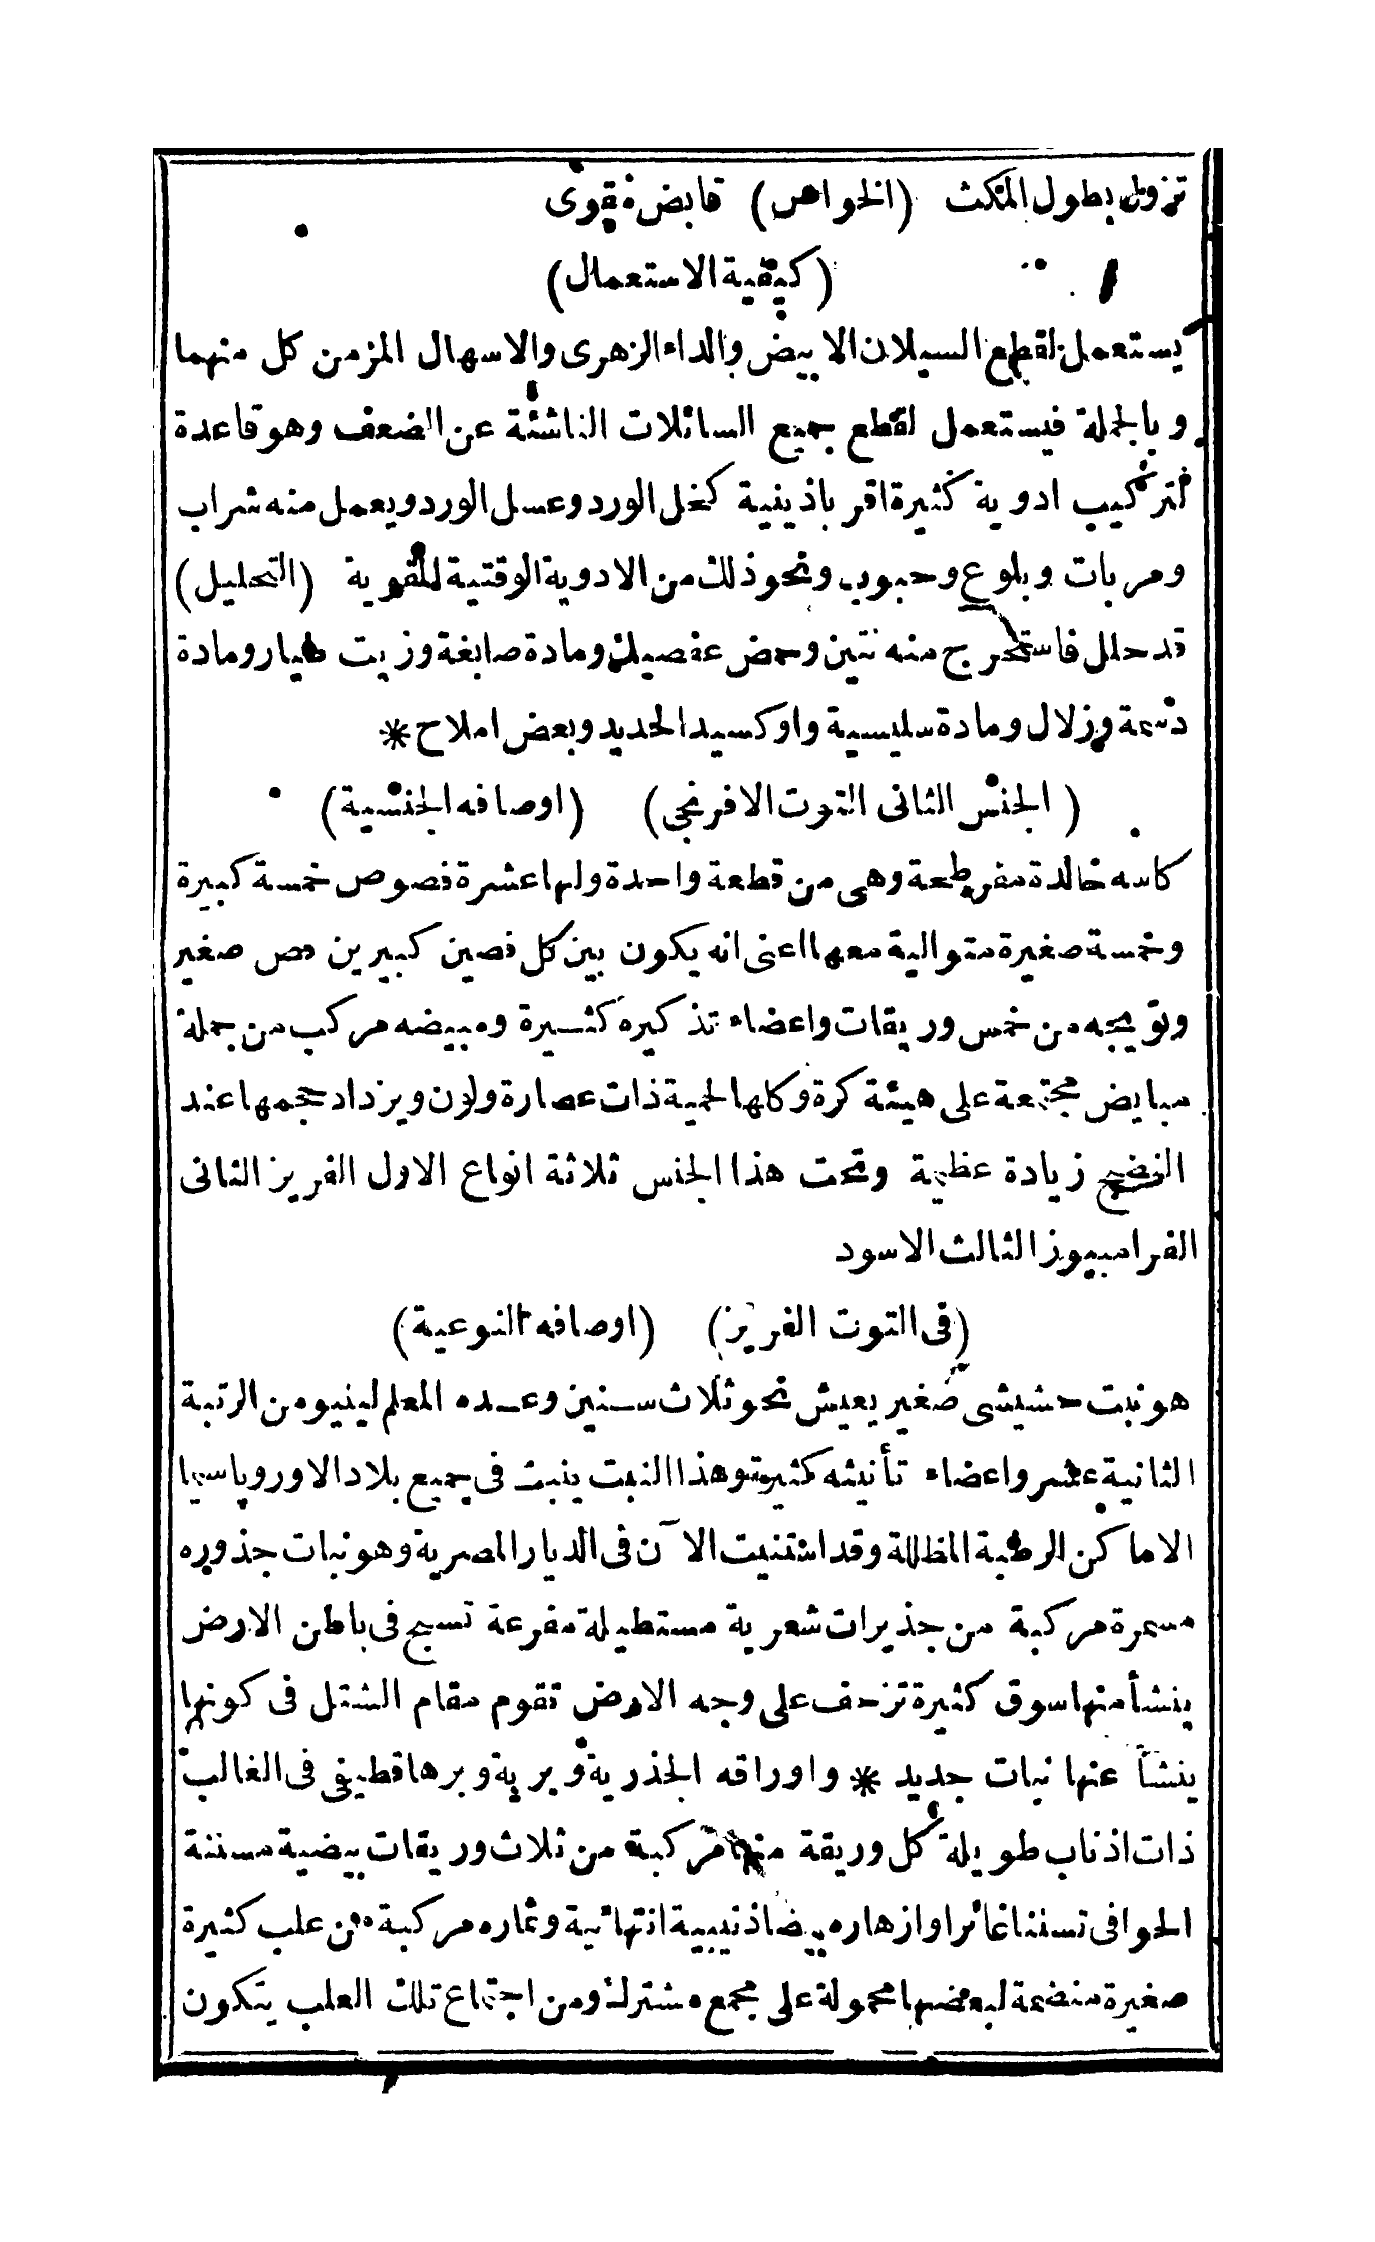 تزول بطول المكث (الخواص) قابض مقوى
(كيفية الاستعمال)
يستعمل لقطع السيلان الابيض والداء الزهرى والاسهال المزمن كل منهما
وبالجملة فيستعمل لقطع جميع السائلات الناشئة عن الضعف وهو قاعدة
لتركيب ادوية كثيرة اقرباذينية كخل الورد وعسل الورد ويعمل منه شراب
ومربات وبلوع وحبوب ونحو ذلك من الادوية الوقتية المقوية (التحليل)
قد حلل فاستخرج منه تنين وحمض عفصيك ومادة صابغة وزيت طيار ومادة
دسمة وزلال ومادة سليسية واوكسيد الحديد وبعض املاح *
(الجنس الثانى التوت الافرنجى) (اوصافه الجنسية)
كاسه خالدة مفرطحة وهى من قطعة واحدة ولها عشرة فصوص خمسة كبيرة
وخمسة صغيرة متوالية معها اعنى انه يكون بين كل فصين كبيرين فص صغير
وتويجه من خمس وريقات واعضاء تذكيره كثيرة ومبيضه مركب من جملة
مبايض مجتمعة على هيئة كرة وكلها لحمية ذات عصارة ولون ويزداد حجمها عند
النضج زيادة عظيمة وتحت هذا الجنس ثلاثة انواع الاول الفريز الثانى
الفرامبيوز الثالث الاسود
(فى التوت الفريز) (اوصافه النوعية)
هو نبت حشيشى صغير يعيش نحو ثلاث سنين وعده المعلم لينيو من الرتبة
الثانية عشر واعضاء تأنيثه كثيرة وهذا النبت ينبت فى جميع بلاد الاوروپا سيما
الاماكن الرطبة المظللة وقد استنبت الآن فى الديار المصرية وهو نبات جذوره
مسمرة مركبة من جذيرات شعرية مستطيلة مفرعة تسبح فى باطن الارض
ينشأ منها سوق كثيرة تزحف على وجه الارض تقوم مقام الشتل فى كونها
ينشأ عنها نبات جديد * واوراقه الجذرية وبرية وبرها قطيفى فى الغالب
ذات اذناب طويلة كل وريقة منها مركبة من ثلاث وريقات بيضية مسننة
الحوافى تسننا غائرا وازهاره بيضا ذنيبية انتهائية وثماره مركبة من علب كثيرة
صغيرة منضمة لبعضها محمولة على مجمع مشترك ومن اجتماع تلك العلب يتكون